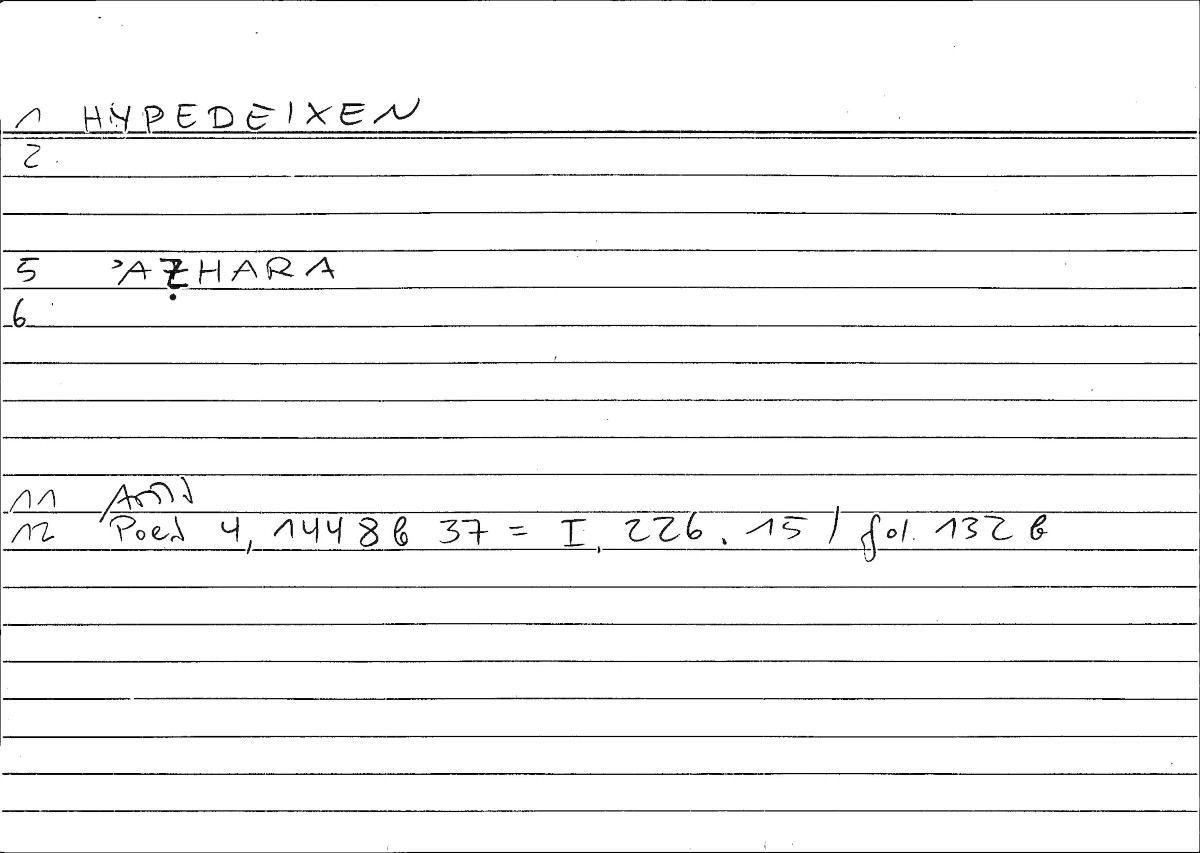 1 HYPEDEIXEN
2
5 ʾAẒHARA
6
11
12 Poet 4, 1448b 37 = I, 226. 15 / fol. 132b